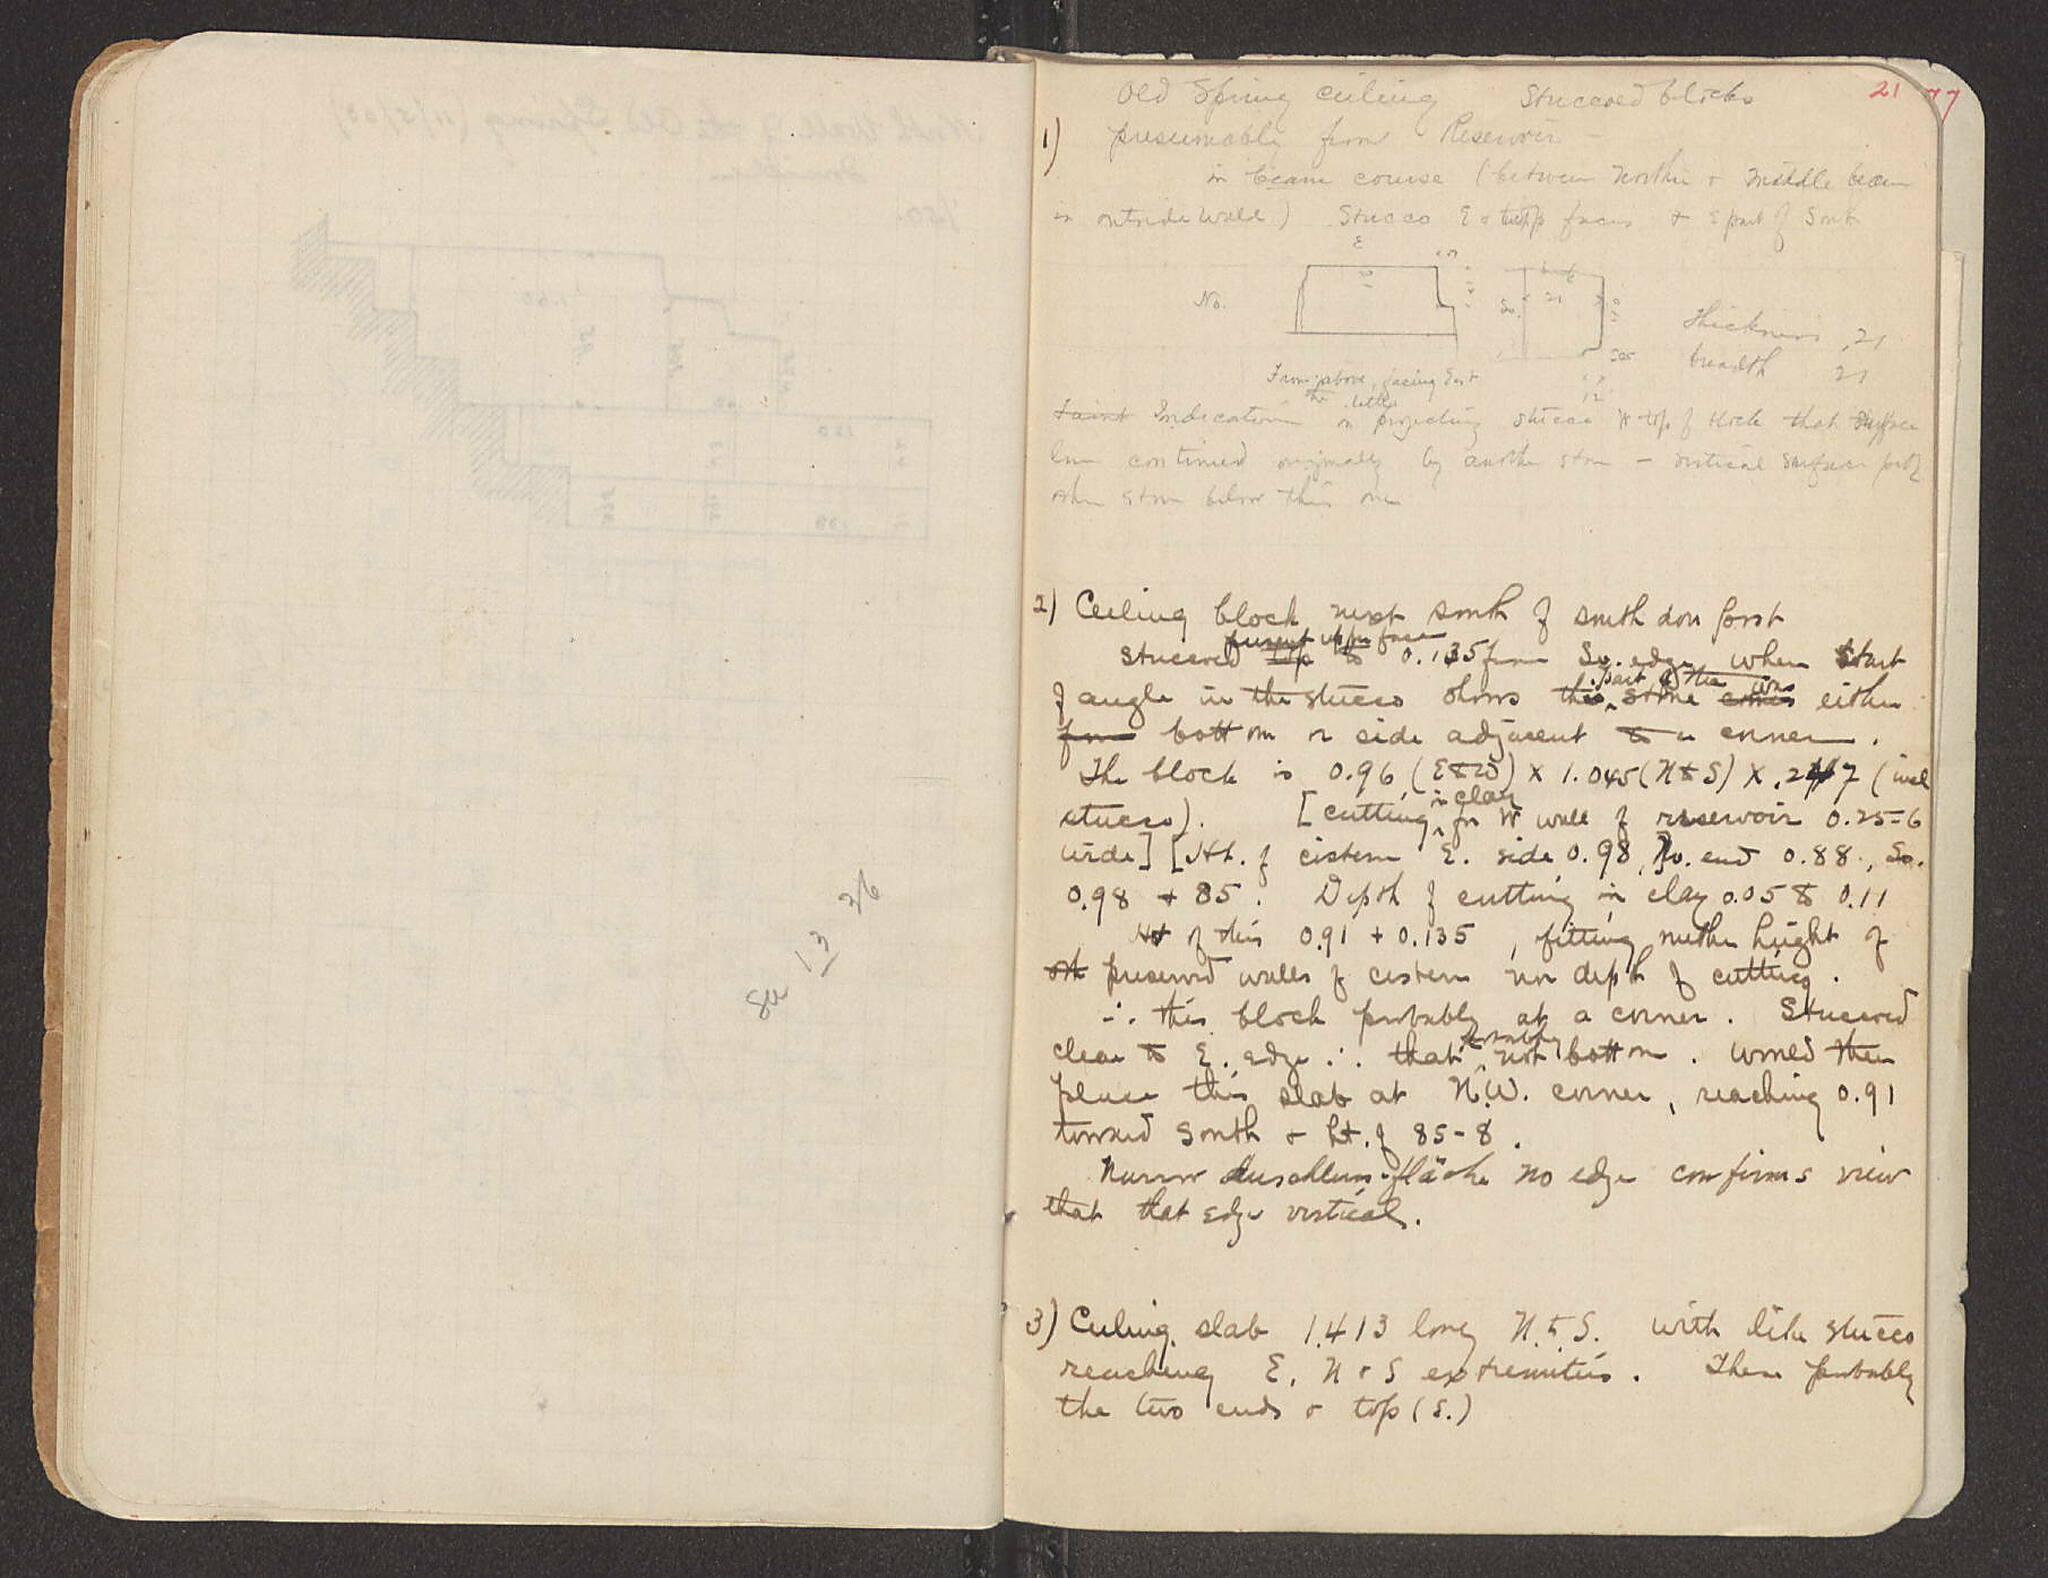 36
see 13
21 77
Old Spring ceiling Stuccoed blocks
1) presumably from Reservoir -
in beam course (between northn & middle beam
in outside wall) Stucco E & top faces & E part of South
E
No. So.
21
Thickness .21
breadth 21
From above, facing East
the latter
Faint Indication on projecting stucco at top of block that surface
was continued originally by another stone - vertical surface part of
other stone below this one
2) Ceiling block next south of south door post
present upper face
Stuccoed top to 0.135 from So. edge where start
part of the was
of angle in the stucco shows this stone comes either
from bottom or side adjacent to a corner.
The block is 0.96 (E&W) x 1.045 (N&S) x .217 (incl
in clay
stucco). [cutting for W wall of reservoir 0.25-6
wide] [Ht. of cistern E. side 0.98, No. end 0.88, So.
0.98 + 85. Depth of cutting in clay 0.05 to 0.11
Ht of this 0.91 + 0.135, fitting neither height of
preserved walls of cistern nor depth of cutting.
∴ this block probably at a corner. Stuccoed
probably
clear to E. edge ∴ that not bottom. Would then
place this slab at N.W. corner, reaching 0.91
toward South & ht. of 85-8.
Narrow Anschluss-fläche No edge confirms view
that that edge vertical.
3) Ceiling slab 1.413 long N. & S. with like stucco
reaching E, N & S extremities. Then probably
the two ends & top (S.)